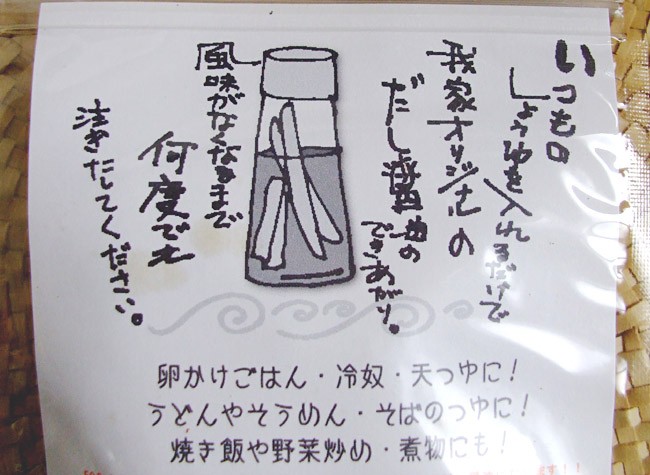 いつもの
しょうゆを入れるだけで
我家オリジナルの
だし醤油の
できあがり。
風味がなくなるまで
何度でも
注ぎたしてください。
卵かけごはん・冷奴・天つゆに！
うどんやそうめん・そばのつゆに！
焼き飯や野菜炒め・煮物にも！